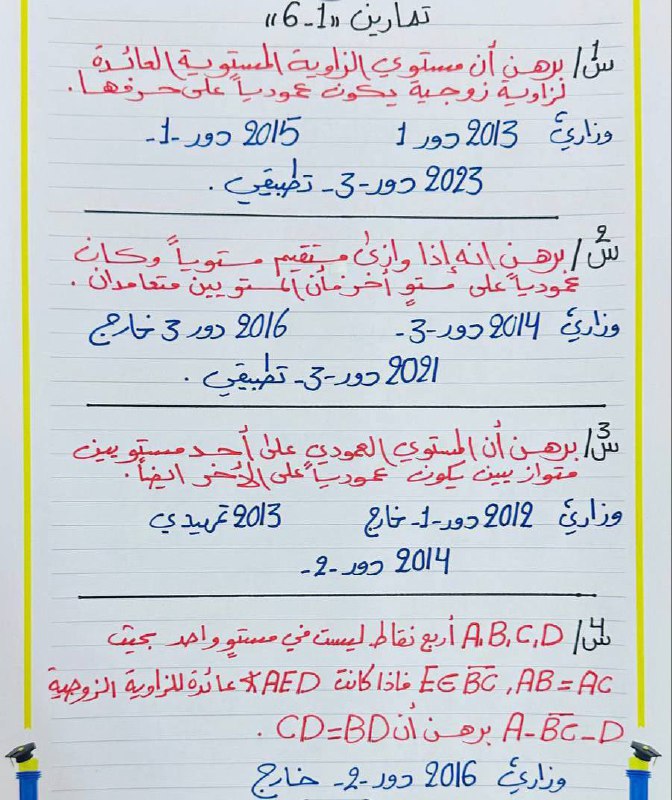 تمارين «1-6»
س1/ برهن أن مستوي الزاوية المستوية العائدة
لزاوية زوجية يكون عمودياً على حرفها.
وزاري 2013 دور 1 2015 دور -1-
2023 دور -3- تطبيقي.
س2/ برهن انه إذا وازى مستقيم مستوياً وكان
عمودياً على مستوٍ أخر فأن المستويين متعامدان.
وزاري 2014 دور -3- 2016 دور 3 خارج
2021 دور -3- تطبيقي.
س3/ برهن أن المستوي العمودي على أحد مستويين
متوازيين يكون عمودياً على الأخر ايضاً.
وزاري 2012 دور -1- خارج 2013 تمهيدي
2014 دور -2-
س4/ A,B,C,D أربع نقاط ليست في مستوٍ واحد بحيث
E∈BC , AB=AC فاذا كانت ∢AED عائدة للزاوية الزوجية
A-BC-D برهن أن CD=BD.
وزاري 2016 دور -2- خارج